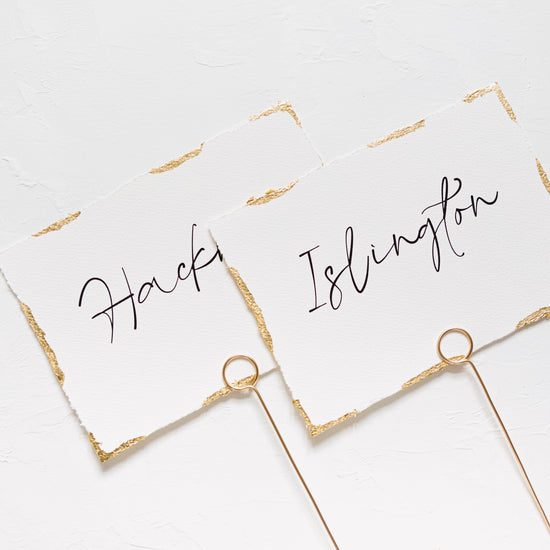 Hack
Islington